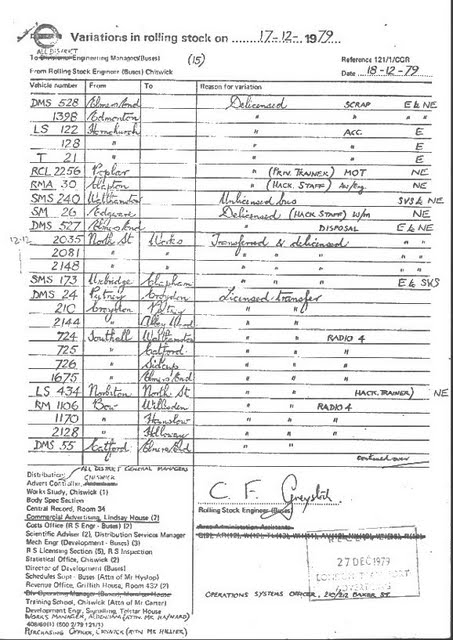 Variations in rolling stock on 17-12-1979
ALL DISTRICT
To Engineering Managers (Buses) (15) Reference 121/1/CGR
From Rolling Stock Engineer (Buses) Chiswick Date 18-12-79
Vehicle number From To Reason for variation
DMS 528 Elmers End Delicensed SCRAP E & NE
1398 Edmonton " " " "
LS 122 Hornchurch " ACC. E
128 " " " E
T 21 " " " E
RCL 2256 Poplar " (PRIV. TRAINER) MOT NE
RMA 30 Clapton " (HACK. STAFF) NE
SMS 240 Walthamstow Unlicensed bus SVS & NE
SM 26 Edgware Delicensed (HACK STAFF) W/m NE
DMS 527 Elmers End " DISPOSAL E & NE
12-12 2035 North St Works Transferred & delicensed " "
2081 " " " " " "
2148 " " " " " "
SMS 173 Uxbridge Clapham " " E & SVS
DMS 24 Putney Croydon Licensed transfer
210 Croydon Putney " "
2144 " Abbey Wood " "
724 Southall Walthamstow " " RADIO 4
725 " Catford " " "
726 " Sidcup " " "
1675 " Elmers End " " "
LS 434 Norbiton North St " " (HACK. TRAINER) NE
RM 1106 Bow Willesden " " RADIO 4
1170 " Hounslow " " "
2128 " Holloway " " "
DMS 55 Catford Elmers End " "
continued over
Distribution: ALL DISTRICT GENERAL MANAGERS
CHISWICK
Advers Controller,
Works Study, Chiswick (1)
Body Spec Section
Central Record, Room 34
Commercial Advertising, Lindsay House (2)
Costs Office (R S Engr - Buses) (2)
Scientific Adviser (2), Distribution Services Manager
Mech Engr (Development - Buses) (3)
R S Licensing Section (5), R S Inspection
Statistical Office, Chiswick (2)
Director of Development (Buses)
Schedules Supt - Buses (Attn of Mr Hyslop)
Revenue Office, Griffith House, Room 432 (2)
Training School, Chiswick (Attn of Mr Carter)
Development Engr, Signalling, Telstar House
WORKS MANAGER, ALDENHAM (ATTN MR HAYWARD)
PURCHASING OFFICER, CHISWICK (ATTN MR HILLIER)
C. F.
Rolling Stock Engineer (Buses)
27 DEC 1979
LONDON TRANSPORT
ADVERTISING
OPERATIONS SYSTEMS OFFICER, 210/212 BAKER ST.